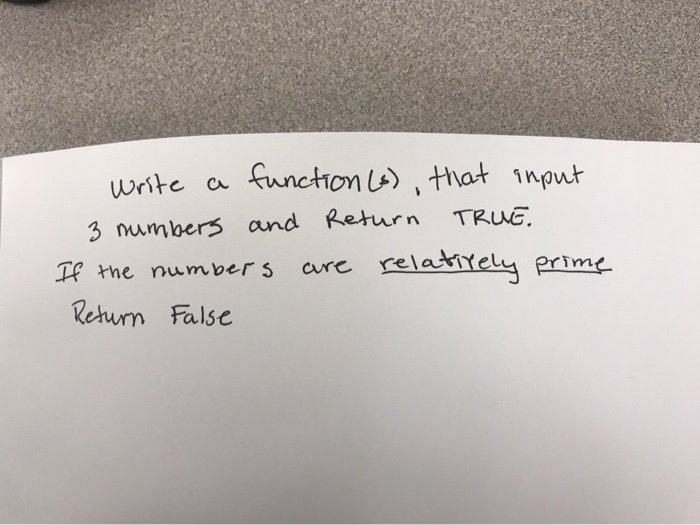 Write a function(s), that input
3 numbers and Return TRUE.
If the numbers are relatively prime
Return False